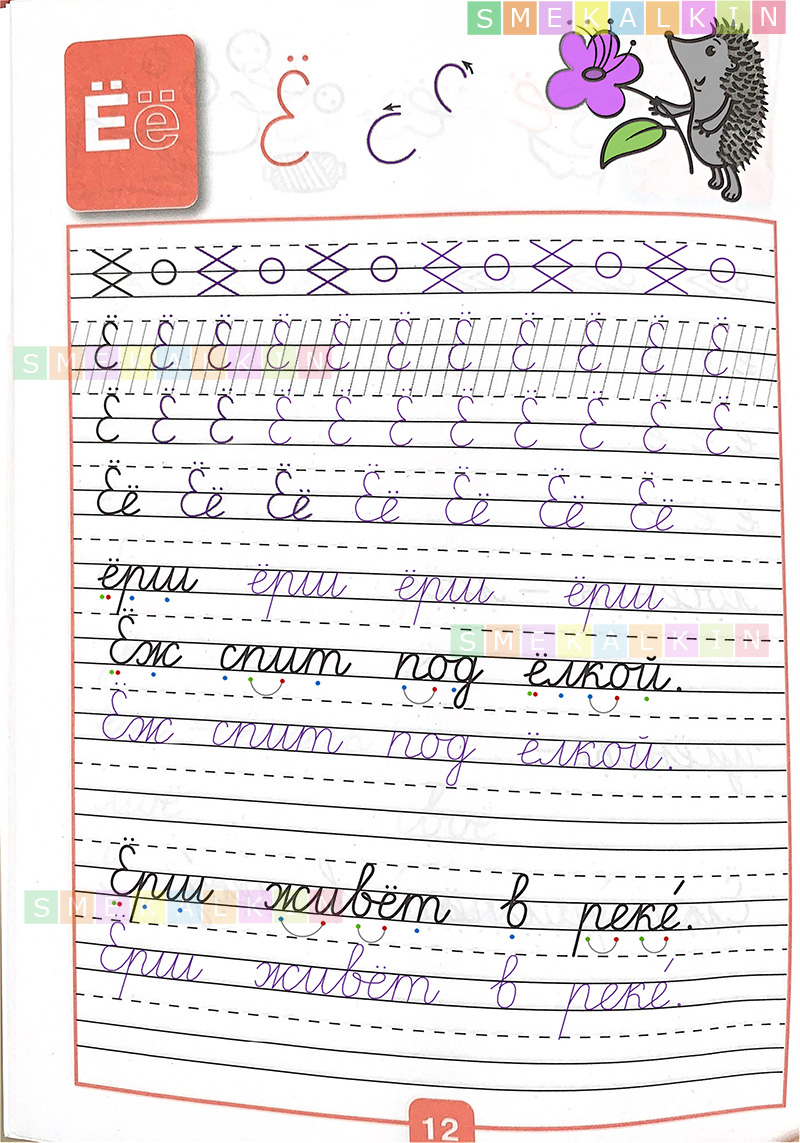 SMEKALKIN
Ёё Ё
Ё Ё Ё Ё Ё Ё Ё Ё Ё Ё Ё
SMEKALKIN
Ё Ё Ё Ё Ё Ё Ё Ё Ё Ё Ё
Ёё Ёё Ёё Ёё Ёё Ёё Ёё
ёрш ёрш ёрш – ёрш
SMEKALKIN
Ёж спит под ёлкой.
Ёж спит под ёлкой.
Ёрш живёт в реке́.
SMEKALKIN
Ёрш живёт в реке́.
12